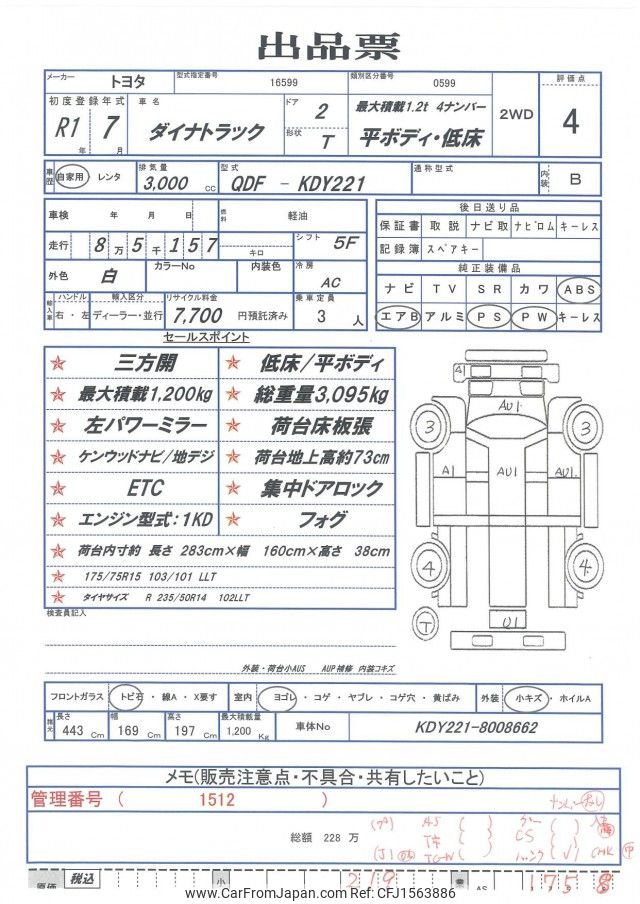 出品票
メーカー トヨタ 型式指定番号 16599 類別区分番号 0599 評価点
初度登録年式 車名 ドア 2 最大積載1.2t 4ナンバー 2WD 4
R1 年 7 月 ダイナトラック 形状 T 平ボディ・低床
車歴 自家用 レンタ 排気量 3,000 cc 型式 QDF - KDY221 通称型式 内装 B
車検 年 月 日 燃料 軽油 後日送り品
保証書 取説 ナビ取 ナビロム キーレス
走行 8万5千157 キロ シフト 5F 記録簿 スペアキー
外色 白 カラーNo 内装色 冷房 AC 純正装備品
ナビ TV SR カワ ABS
輸入車 ハンドル 右・左 輸入区分 ディーラー・並行 リサイクル料金 7,700 円預託済み 乗車定員 3 人 エアB アルミ PS PW キーレス
セールスポイント
三方開 低床/平ボディ
最大積載1,200kg 総重量3,095kg
左パワーミラー 荷台床板張
ケンウッドナビ/地デジ 荷台地上高約73cm
ETC 集中ドアロック
エンジン型式:1KD フォグ
荷台内寸約 長さ 283cm×幅 160cm×高さ 38cm
175/75R15 103/101 LLT
タイヤサイズ R 235/50R14 102LLT
A1
AU1
3 3
A1 AU1 AU1
4 4
T U1
検査員記入
外装・荷台小AUS AUP補修 内装コキズ
フロントガラス トビ石・線A・X要す 室内 ヨゴレ・コゲ・ヤブレ・コゲ穴・黄ばみ 外装 小キズ・ホイルA
諸元 長さ 443 Cm 幅 169 Cm 高さ 197 Cm 最大積載量 1,200 Kg 車体No KDY221-8008662
メモ(販売注意点・不具合・共有したいこと)
管理番号 ( 1512 )
総額 228 万
AS
CS
原価 税込 小 219 業 AS 1758
CarFromJapan.com CFJ1563886